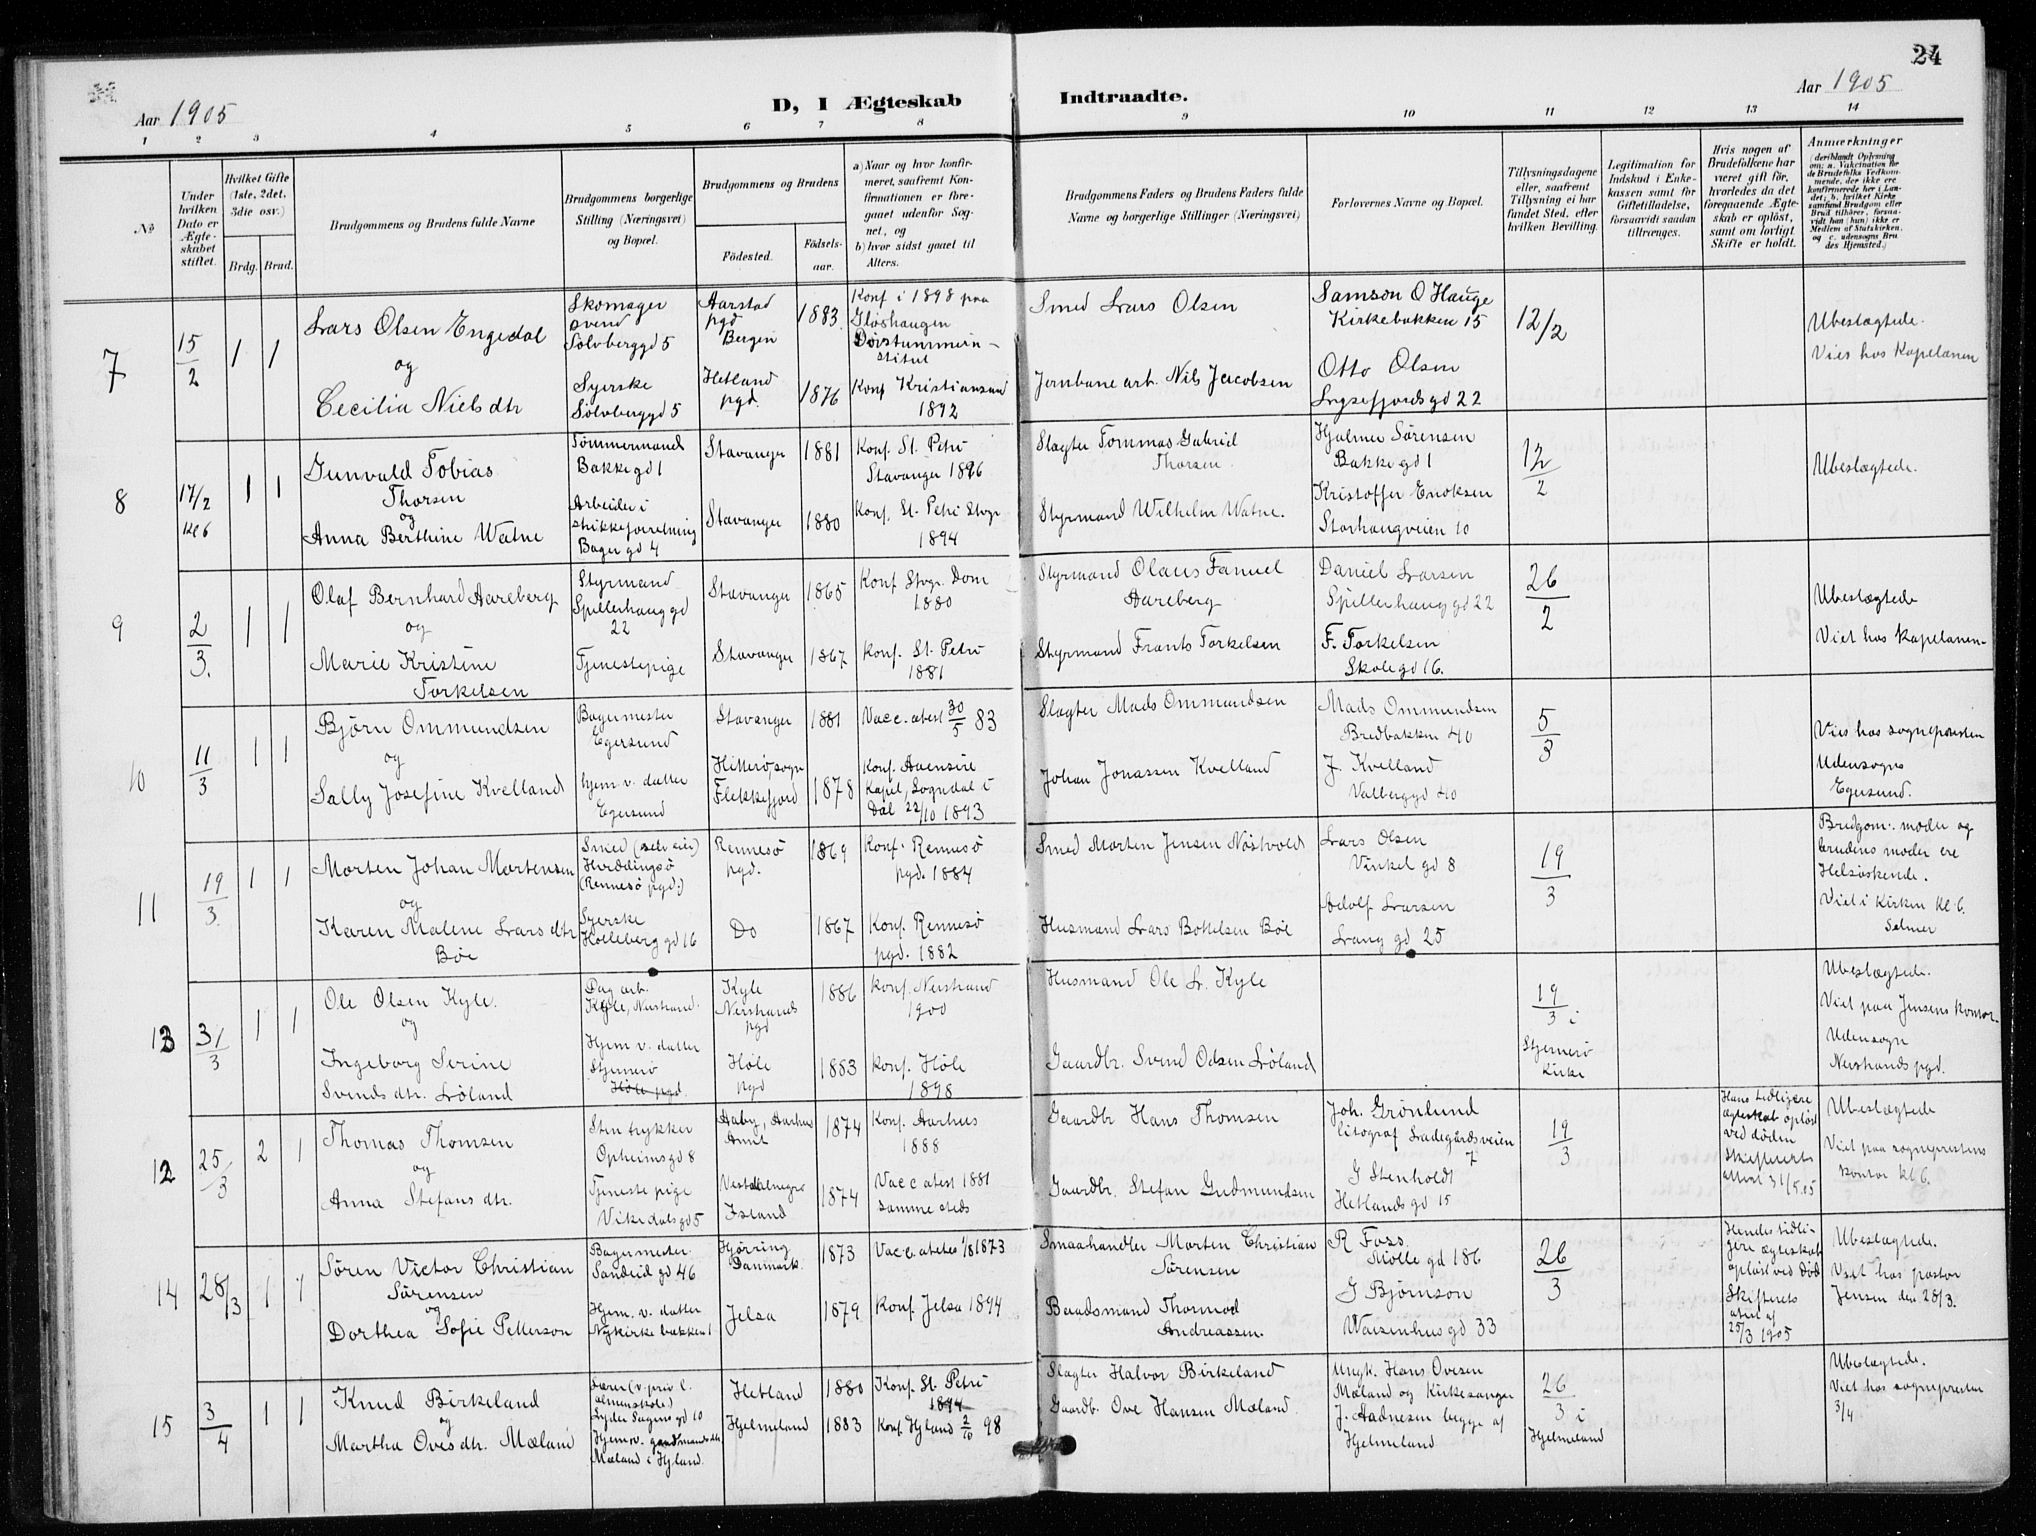 24
Aar 1905
D, I Ægteskab Indtraadte.
Aar 1905
1 2 3 4 5 6 7 8 9 10 11 12 13 14
No
Under hvilken Dato er Ægteskabet stiftet.
Hvilket Gifte (1ste, 2det, 3die osv.)
Brdg. Brud.
Brudgommens og Brudens fulde Navne
Brudgommens borgerlige Stilling (Næringsvei) og Bopæl.
Brudgommens og Brudens
Födested.
Födsels-aar.
a) Naar og hvor konfirmeret, saafremt Konfirmationen er foregaaet udenfor Sognet, og
b) hvor sidst gaaet til Alters.
Brudgommens Faders og Brudens Faders fulde Navne og borgerlige Stillinger (Næringsvei)
Forlovernes Navne og Bopæl.
Tillysningsdagene eller, saafremt Tillysning ei har fundet Sted, efter hvilken Bevilling.
Legitimation for Indskud i Enkekassen samt for Giftetilladelse, forsaavidt saadan tiltrænges.
Hvis nogen af Brudefolkene har været gift för, hvorledes da det foregaaende Ægteskab er oplöst, samt om lovligt Skifte er holdt.
Anmærkninger
(deriblandt Oplysning om: a. Vakcination for de Brudefolks Vedkommende, der ikke ere konfirmerede her i Landet; b. hvilket Kirkesamfund Brudgom eller Brud tilhörer, forsaavidt han (hun) ikke er Medlem af Statskirken, og c. udensogns Brudes Hjemsted.)
7
15/2
1 1
Lars Olsen Engedal
og
Cecilia Nielsdtr
Skomager svend
Sölvberggd 5
Syerske
Sölvberggd 5
Aarstad pgd
Bergen
Hetland pgd.
1883
1876
Konf i 1898 paa
Gløshaugen
Døvstummein-
stitut
Konf Kristiansand
1892
Smed Lars Olsen
Jernbane arb. Nils Jacobsen
Samson O Hauge
Kirkebakken 15
Otto Olsen
Lysefjordsgd 22
12/2
Ubeslægtede.
Vies hos Kapelanen
8
17/2
Kl 6
1 1
Gunvald Tobias
Thorsen
og
Anna Berthine Watne
Tømmermand
Bakkegd 1
Arbeider i
strikkeforretning
Bagergd 4
Stavanger
Stavanger
1881
1880
Konf. St. Petri
Stavanger 1896
Konf. St. Petri Stvgr
1894
Slagter Tommas Gabriel
Thorsen.
Styrmand Wilhelm Watne.
Hjalmer Sørensen
Bakkegd 1
Kristoffer Enoksen
Storhaugveien 10
12/2
Ubeslægtede.
9
2/3.
1 1
Olaf Bernhard Aareberg
og
Marie Kristine
Torkelsen
Styrmand
Spilderhauggd
22
Tjenestepige
Stavanger
Stavanger
1865
1867
Konf Stvgr. Dom
1880
Konf. St. Petri
1881
Styrmand Olaus Fanuel
Aareberg
Styrmand Frants Torkelsen
Daniel Larsen
Spilderhauggd 22
F. Torkelsen
Skolegd 16.
26/2
Ubeslægtede
Viet hos Kapelanen
10
11/3
1 1
Bjørn Ommundsen
og
Sally Josefine Kvelland
Bagermester
Egersund
hjem v. datter
Egersund
Stavanger
Hitterøsogn
Flekkefjord
1881
1878
Vacc. atest 30/5 83
Konf. Aaensire
Kapel, Sogndal i
Dal 22/10 1893
Slagter Mads Ommundsen
Johan Jonassen Kvelland
Mads Ommundsen
Bredbakken 40
J. Kvelland
Valberggd 40
5/3
Vies hos sognepresten
Udensogns
Egersund.
11
19/3.
1 1
Morten Johan Mortensen
og
Karen Malene Larsdtr
Bøe
Smed (selv eier)
Hviddingsö
(Rennesö pgd.)
Syerske
Holleberggd 16
Rennesö pgd.
Do
1869
1867
Konf. Rennesö
pgd. 1884
Konf. Rennesö
pgd. 1882
Smed Morten Jensen Nöstvold
Husmand Lars Botlelsen Bøe
Lars Olsen
Vinkelgd 8
Adolf Larsen
Langgd 25
19/3
Brudgom. moder og
brudens moder ere
Helsöskende.
Viet i Kirken Kl 6.
Selmer
13
31/3
1 1
Ole Olsen Kyle.
og
Ingeborg Serine
Svendsdtr. Löland
Dag arb.
Kyle, Nerstrand.
Hjem v. datter
Stjernerö
Höle pgd.
Kyle
Nerstrands
pgd
Höle
pgd
1886
1883
Konf. Nerstrand
1900
Konf. Höle
1898
Husmand Ole L. Kyle
Gaardbr. Svend Odsen Löland
19/3 i
Stjernerö
Kirke
Ubeslægtede.
Viet paa Jensens kontor.
Udensogn
Nerstrands pgd.
12
25/3
2 1
Thomas Thomsen
og
Anna Stefansdtr.
Stentrykker
Opheimsgd 8
Tjenestepige
Vikedalsgd 5
Aaby, Aarhus
Amt
Island
1874
1874
Konf. Aarhus
1888
Vacc atest 1881
samme steds
Gaardbr Hans Thomsen
Gaardbr. Stefan Gudmundsen
Joh. Grönlund
litograf Ladegårdsveien
7
J Stenholdt
Hetlandsgd 15
19/3
Hans tidligere
ægteskab opløst
ved döden
Skifterets
attest 31/5.05
Ubeslægtede
Viet paa sogneprestens
kontor kl 6.
14
28/3
1 1
Sören Victor Christian
Sörensen
og
Dorthea Sofie Petterson
Bagermester
Sandeidgd 46
Hjem. v. datter
Nykirkebakken 1
Hjørring
Danmark.
Jelsa
1873
1879
Vacc. atest 1/8 1873
Konf. Jelsa 1894
Smaahandler Morten Christian
Sörensen
Baadsmand Thormod
Andreassen.
R Foss
Möllegd 186
J Björnson
Waisenhusgd 33
26/3
Hendes tidli-
gere ægteskab
opløst ved död
Skifterets
attest af
25/3 1905
Ubeslægtede.
Viet hos pastor
Jensen den 28/3.
15
3/4
1 1
Knud Birkeland
og
Martha Ovesdtr. Mæland
Lærer (v priv l.
almenskole)
Lyder Sagensgd 10
Hjem v. gaardmandsdtr
Mæland i Hjland.
Hetland
Hjelmeland
1880
1883
Konf. St. Petri
1894
Konf. Hjland 2/10 98
Slagter Halvor Birkeland
Gaardb. Ove Hansen Mæland.
Ungk. Hans Ovesen
Mæland og Kirkesanger
J. Aadnesen begge af
Hjelmeland
26/3 i
Hjelmeland
Ubeslægtede.
Viet hos sognepresten
3/4.